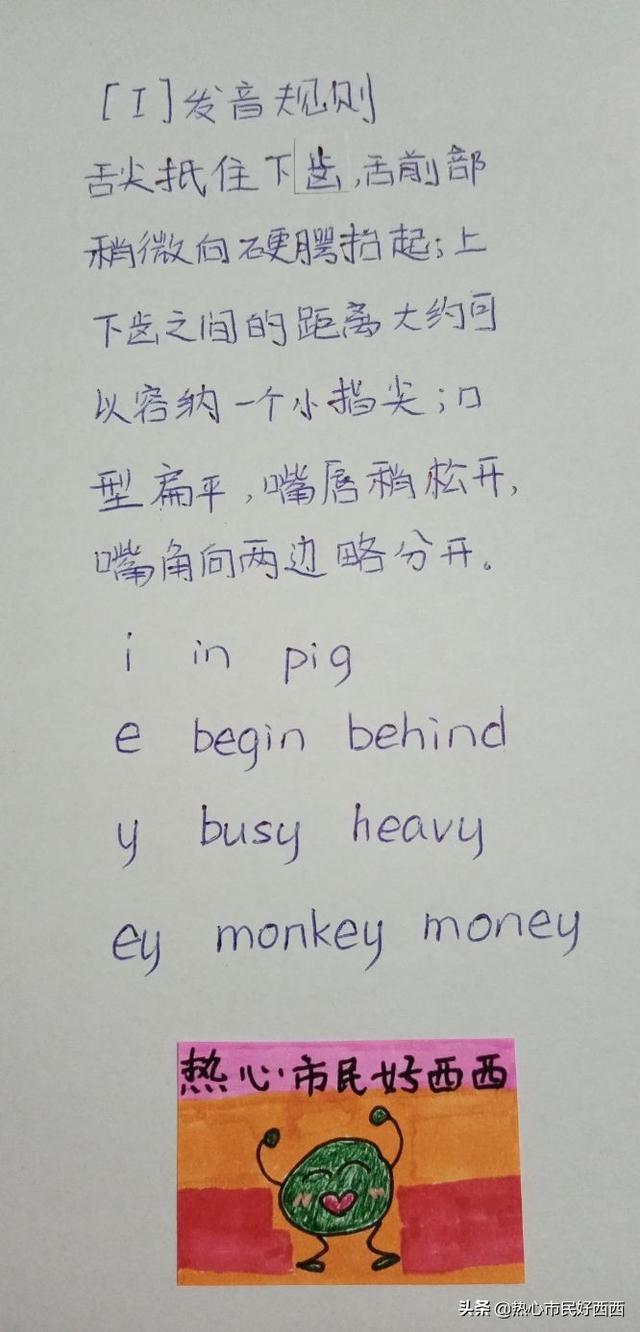 [I]发音规则
舌尖抵住下齿,舌前部
稍微向硬腭抬起;上
下齿之间的距离大约可
以容纳一个小指尖;口
型扁平,嘴唇稍松开,
嘴角向两边略分开。
i in pig
e begin behind
y busy heavy
ey monkey money
热心市民好西西
头条 @热心市民好西西